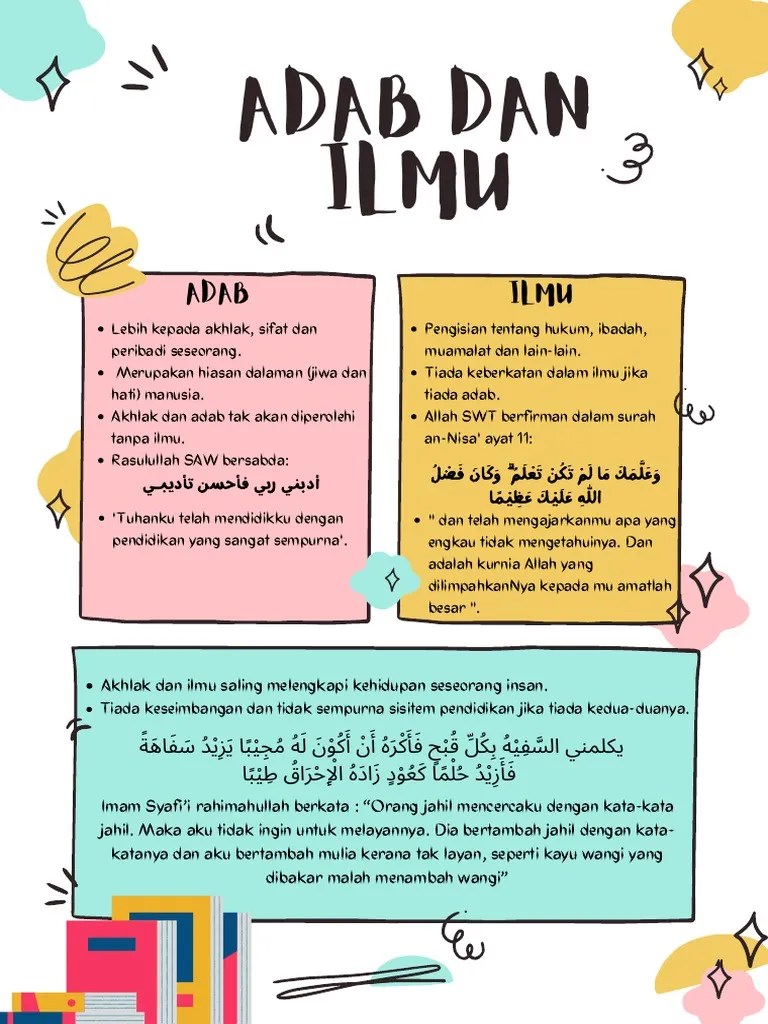 ADAB DAN
ILMU
ADAB
• Lebih kepada akhlak, sifat dan
peribadi seseorang.
• Merupakan hiasan dalaman (jiwa dan
hati) manusia.
• Akhlak dan adab tak akan diperolehi
tanpa ilmu.
• Rasulullah SAW bersabda:
أدبني ربي فأحسن تأديبي
• 'Tuhanku telah mendidikku dengan
pendidikan yang sangat sempurna'.
ILMU
• Pengisian tentang hukum, ibadah,
muamalat dan lain-lain.
• Tiada keberkatan dalam ilmu jika
tiada adab.
• Allah SWT berfirman dalam surah
an-Nisa' ayat 11:
وَعَلَّمَكَ مَا لَمْ تَكُنْ تَعْلَمُ ۗ وَكَانَ فَضْلُ
اللّٰهِ عَلَيْكَ عَظِيْمًا
• " dan telah mengajarkanmu apa yang
engkau tidak mengetahuinya. Dan
adalah kurnia Allah yang
dilimpahkanNya kepada mu amatlah
besar ".
• Akhlak dan ilmu saling melengkapi kehidupan seseorang insan.
• Tiada keseimbangan dan tidak sempurna sisitem pendidikan jika tiada kedua-duanya.
يكلمني السَّفِيْهُ بِكُلِّ قُبْحٍ فَأَكْرَهُ أَنْ أَكُوْنَ لَهُ مُجِيْبًا يَزِيْدُ سَفَاهَةً
فَأَزِيْدُ حُلْمًا كَعُوْدٍ زَادَهُ الْإِحْرَاقُ طِيْبًا
Imam Syafi'i rahimahullah berkata : “Orang jahil mencercaku dengan kata-kata
jahil. Maka aku tidak ingin untuk melayannya. Dia bertambah jahil dengan kata-
katanya dan aku bertambah mulia kerana tak layan, seperti kayu wangi yang
dibakar malah menambah wangi”